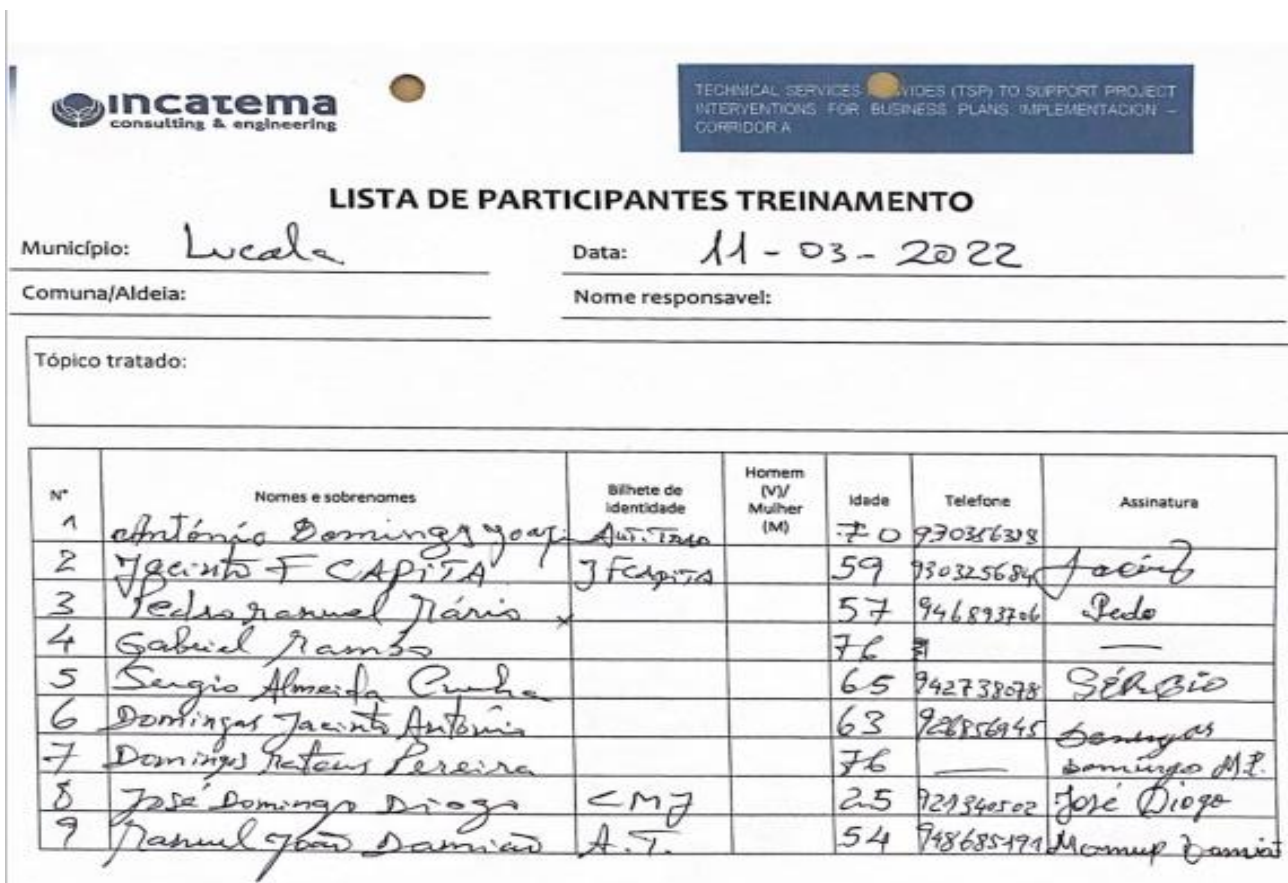 incatema
consulting & engineering
TECHNICAL SERVICES (TSP) TO SUPPORT PROJECT
INTERVENTIONS FOR BUSINESS PLANS IMPLEMENTACION –
CORRIDOR A
LISTA DE PARTICIPANTES TREINAMENTO
Município: Lucala Data: 11-03-2022
Comuna/Aldeia: Nome responsavel:
Tópico tratado:
N° Nomes e sobrenomes Bilhete de identidade Homem (V)/ Mulher (M) Idade Telefone Assinatura
1 António Domingos 70
2 Jacinto F CAPITA J F CAPITA 59 930325684 Jacinto
3 Pedro Manuel Mário x 57 946893706 Pedo
4 Gabriel 76 —
5 Sergio Almeida Cunha 65 942738078 SÉRGIO
6 Domingas Jacinto António 63 926856945
7 Domingos Mateus Pereira 76 — Domingo M.P.
8 José Domingo Diogo CMJ 25 921340502 José Diogo
9 Manuel João Damião A.T. 54 948685191